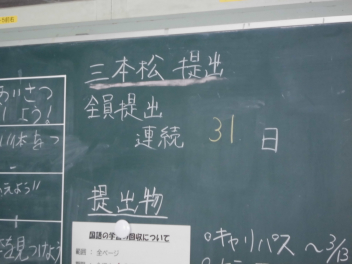 三本松 提出
全員提出
連続 31 日
提出物
国語の学習の回収について
範囲 : 全ページ
キャリパス ~3/13
あいさつ
しよう
えよう!!
を見つけよう